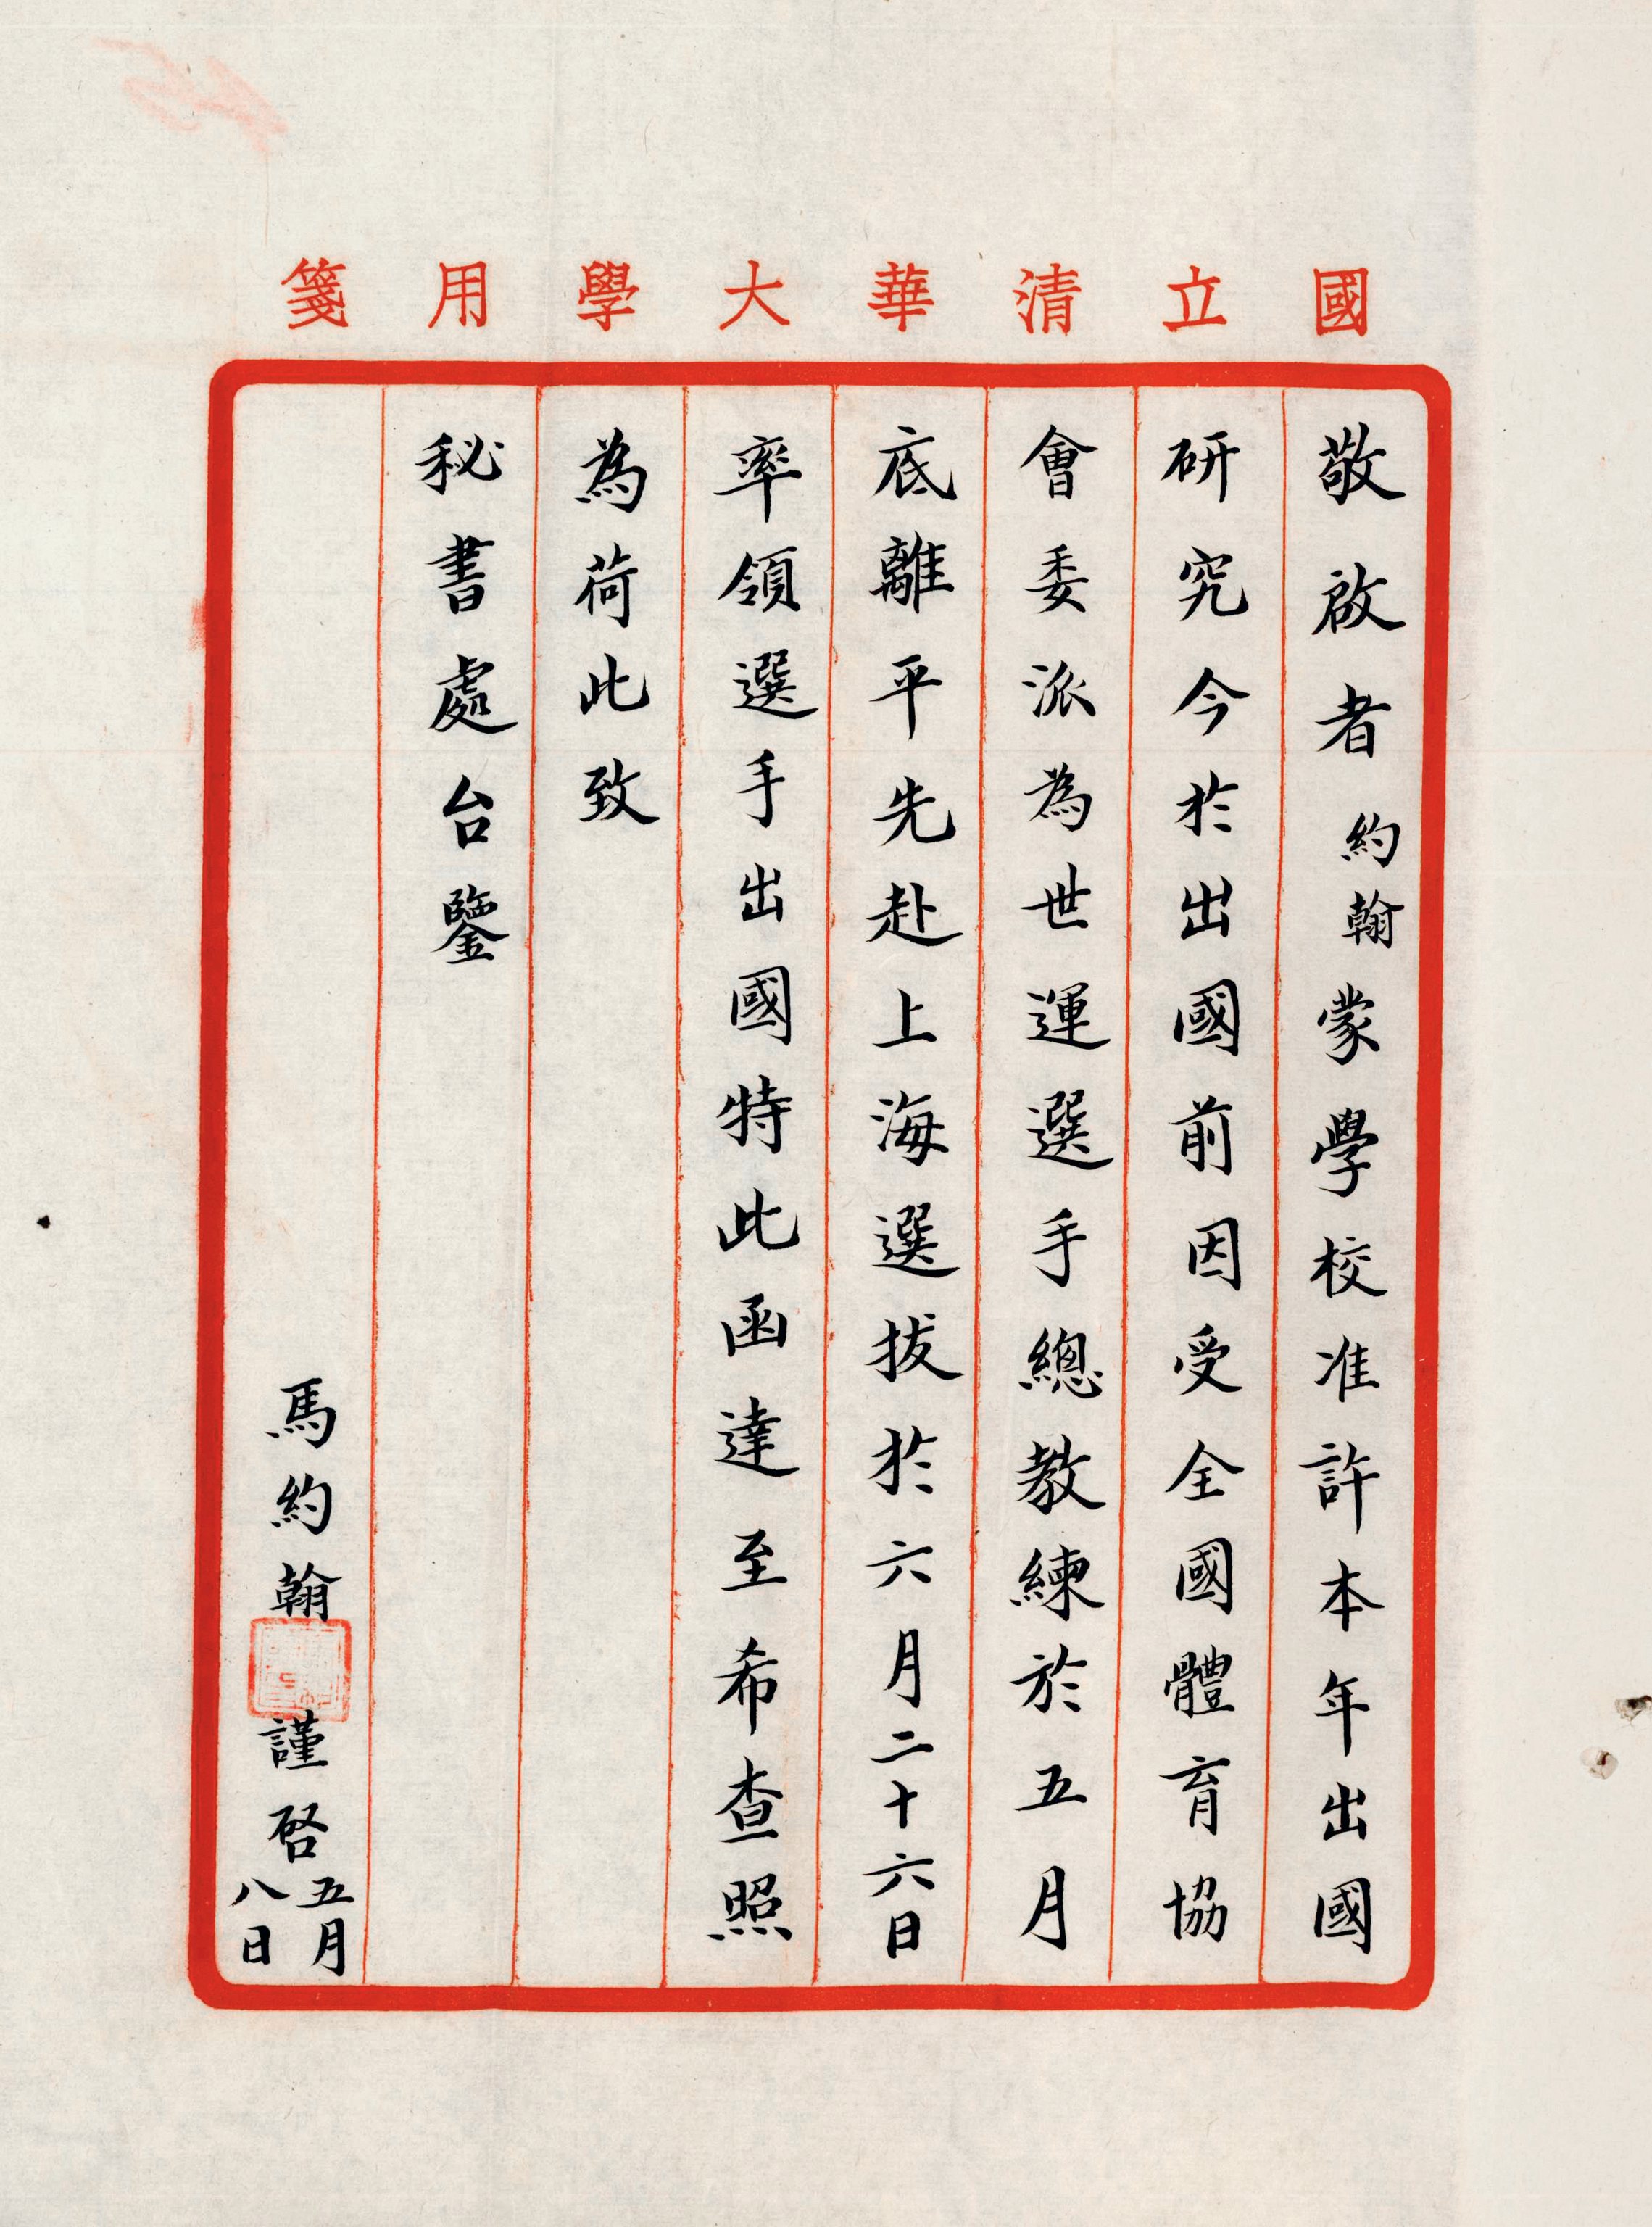 國立清華大學用箋
敬啟者約翰蒙學校准許本年出國
研究今於出國前因受全國體育協
會委派為世運選手總教練於五月
底離平先赴上海選拔於六月二十六日
率領選手出國特此函達至希查照
為荷此致
秘書處台鑒
馬約翰謹啓五月
八日